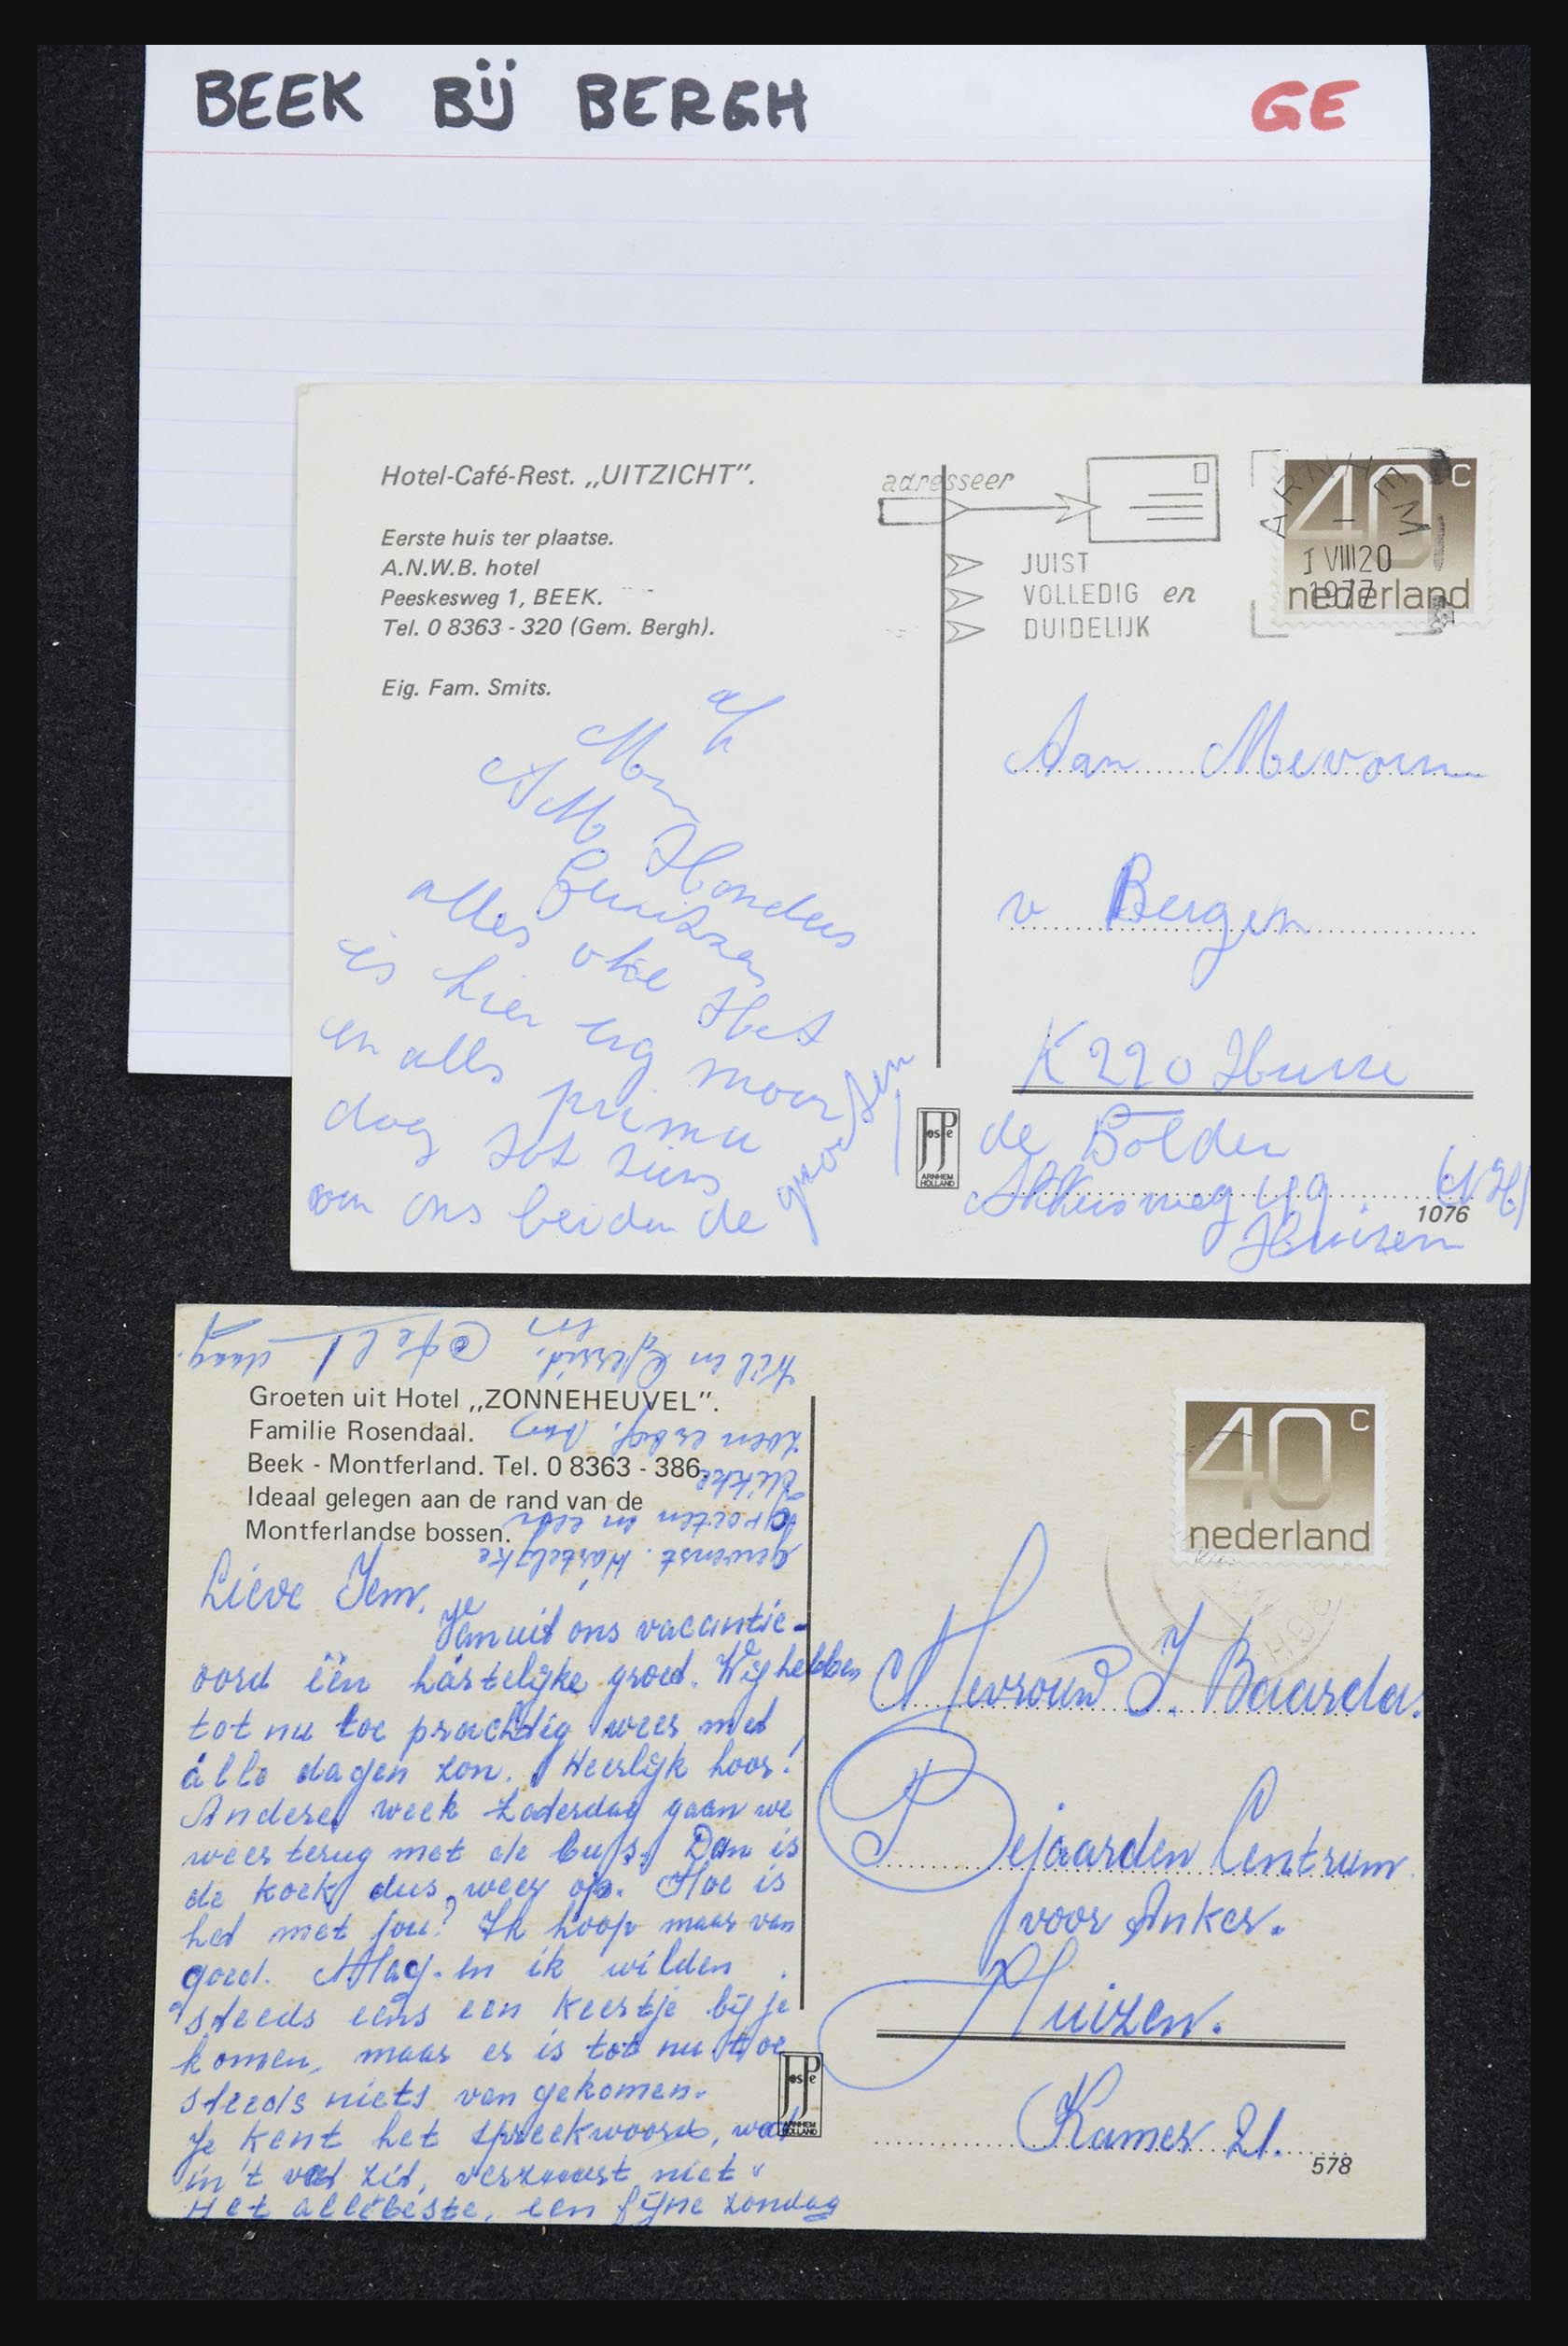 BEEK BIJ BERGH GE
Hotel-Café-Rest. „UITZICHT”.
Eerste huis ter plaatse.
A.N.W.B. hotel
Peeskesweg 1, BEEK.
Tel. 0 8363 - 320 (Gem. Bergh).
Eig. Fam. Smits.
alles oke Het
is hier erg mooi
en alls prima
dag tot ziens
van ons beiden de
groeten
adresseer
JUIST
VOLLEDIG en
DUIDELIJK
ARNHEM
1 VIII 20
1977
40 c
nederland
Aan
v Bergen
K 220
de Bolder
Huizen
1076
JosPe
ARNHEM
HOLLAND
Groeten uit Hotel „ZONNEHEUVEL”.
Familie Rosendaal.
Beek - Montferland. Tel. 0 8363 - 386.
Ideaal gelegen aan de rand van de
Montferlandse bossen.
Lieve
Vanuit ons vacantie-
oord één hartelijke groet. Wij hebben
tot nu toe prachtig weer met
alle dagen zon. Heerlijk hoor!
Andere week Zaterdag gaan we
weer terug met de bus. Dan is
de koek dus weer op. Hoe is
het met jou? Ik hoop maar van
goed. en ik wilden
steeds eens een keertje bij je
komen, maar er is tot nu toe
steeds niets van gekomen.
Je kent het spreekwoord, wat
in 't vat zit, verzuurt niet.
Het allerbeste, een fijne zondag
gewenst. Hartelijke
groeten en een
dikke
zoen
40 c
nederland
Mevrouw J. Baarda.
Bejaarden Centrum
voor Anker.
Huizen.
Kamer 21.
578
JosPe
ARNHEM
HOLLAND